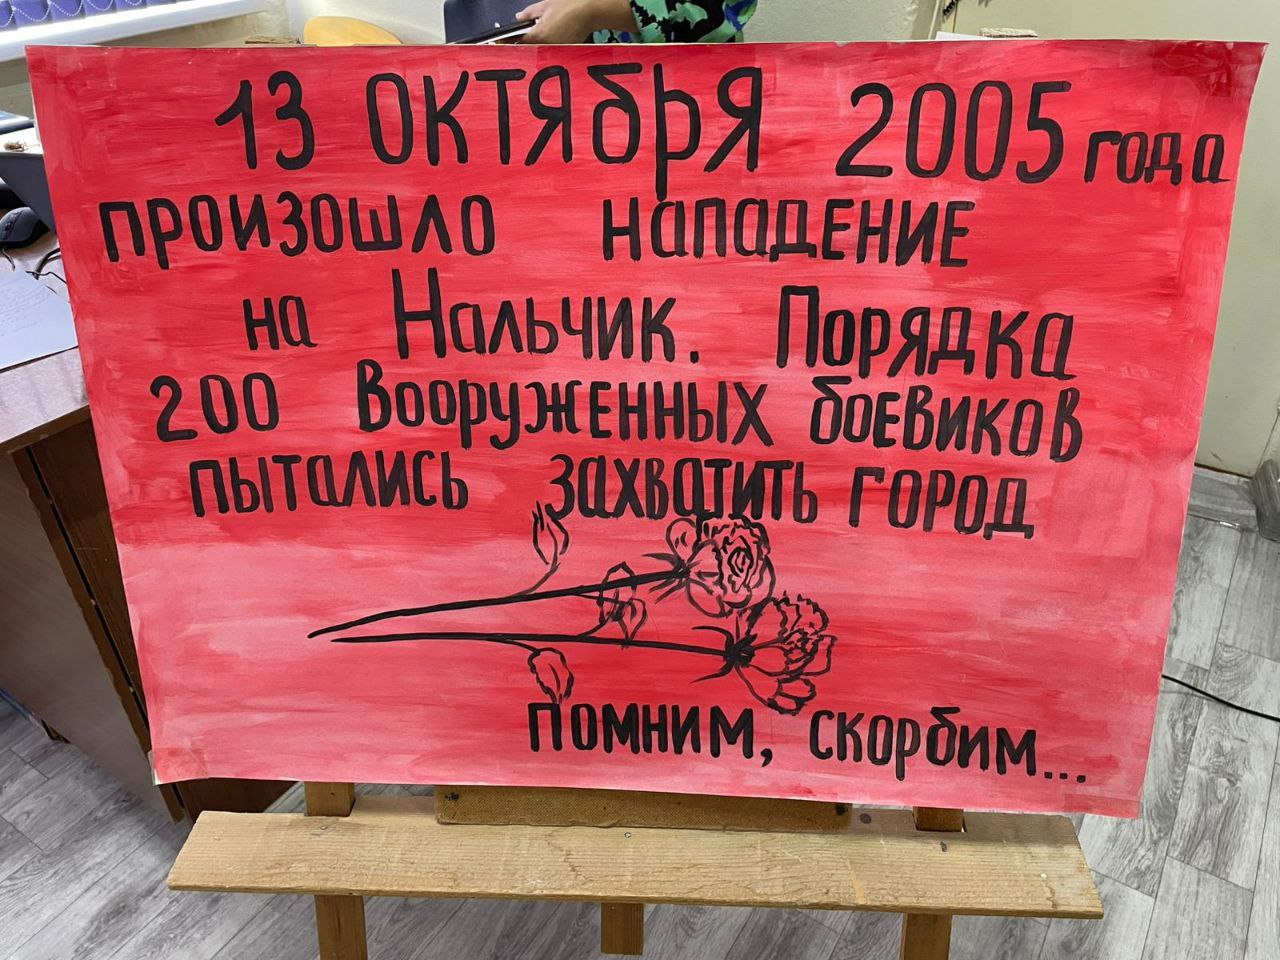 13 ОКТЯБРЯ 2005 года
произошло нападение
на Нальчик. Порядка
200 Вооруженных боевиков
пытались захватить город
помним, скорбим...